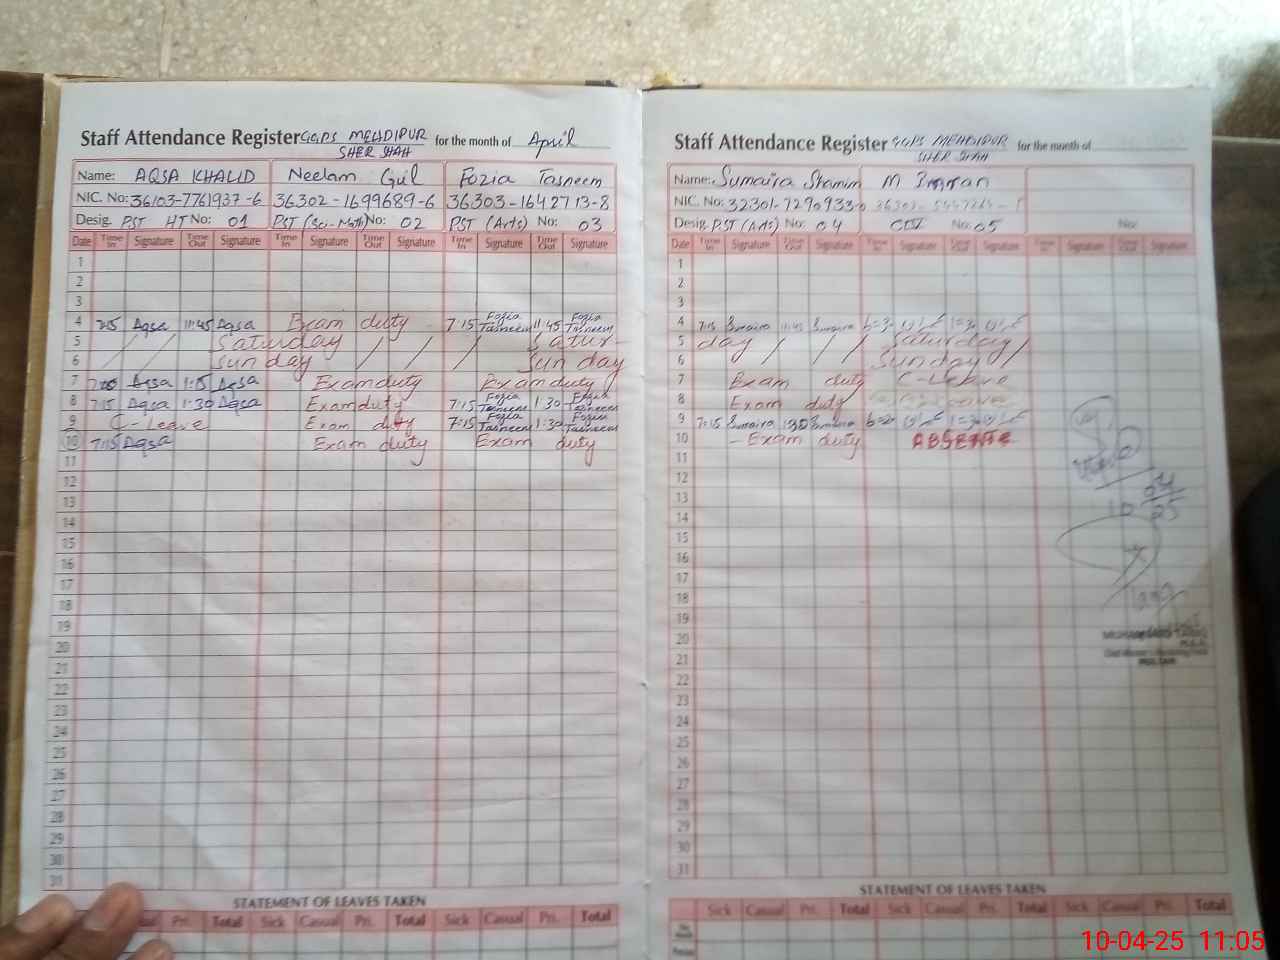 Staff Attendance Register GGPS MEHDIPUR for the month of April
SHER SHAH
Name: AQSA KHALID Neelam Gul Fozia Tasneem
NIC. No: 36103-7761937-6 36302-1699689-6 36303-1642713-8
Desig. PST HT No: 01 PST (Sci-Math) No: 02 PST (Arts) No: 03
Date Time In Signature Time Out Signature Time In Signature Time Out Signature Time In Signature Time Out Signature
1
2
3
4 7:15 Aqsa 11:45 Aqsa Exam duty 7:15 Fozia Tasneem 11:45 Fozia Tasneem
5 Saturday Satur-
6 Sunday Sunday
7 Aqsa 1:15 Aqsa Exam duty Exam duty
8 7:15 Aqsa 1:30 Aqsa Exam duty 7:15 Fozia Tasneem 1:30 Fozia Tasneem
9 C-Leave Exam duty 7:15 Fozia Tasneem 1:30 Fozia Tasneem
10 7:15 Aqsa Exam duty Exam duty
11
12
13
14
15
16
17
18
19
20
21
22
23
24
25
26
27
28
29
30
31
STATEMENT OF LEAVES TAKEN
Pri. Total Sick Casual Pri. Total Sick Casual Pri. Total
Staff Attendance Register GGPS MEHDIPUR for the month of
SHER SHAH
Name: Sumaira Shamim M Imran
NIC. No: 32301-7290933-0
Desig. PST (Arts) No: 04 No: 05 No:
Date Time In Signature Time Out Signature Time In Signature Time Out Signature Time In Signature Time Out Signature
1
2
3
4 7:15 Sumaira 11:45 Sumaira
5 day Saturday
6 Sunday
7 Exam duty C-Leave
8 Exam duty
9 7:15 Sumaira 1:30 Sumaira
10 - Exam duty
11
12
13
14
15
16
17
18
19
20
21
22
23
24
25
26
27
28
29
30
31
MULTAN
STATEMENT OF LEAVES TAKEN
Sick Casual Pri. Total Sick Casual Pri. Total Sick Casual Pri. Total
10-04-25 11:05